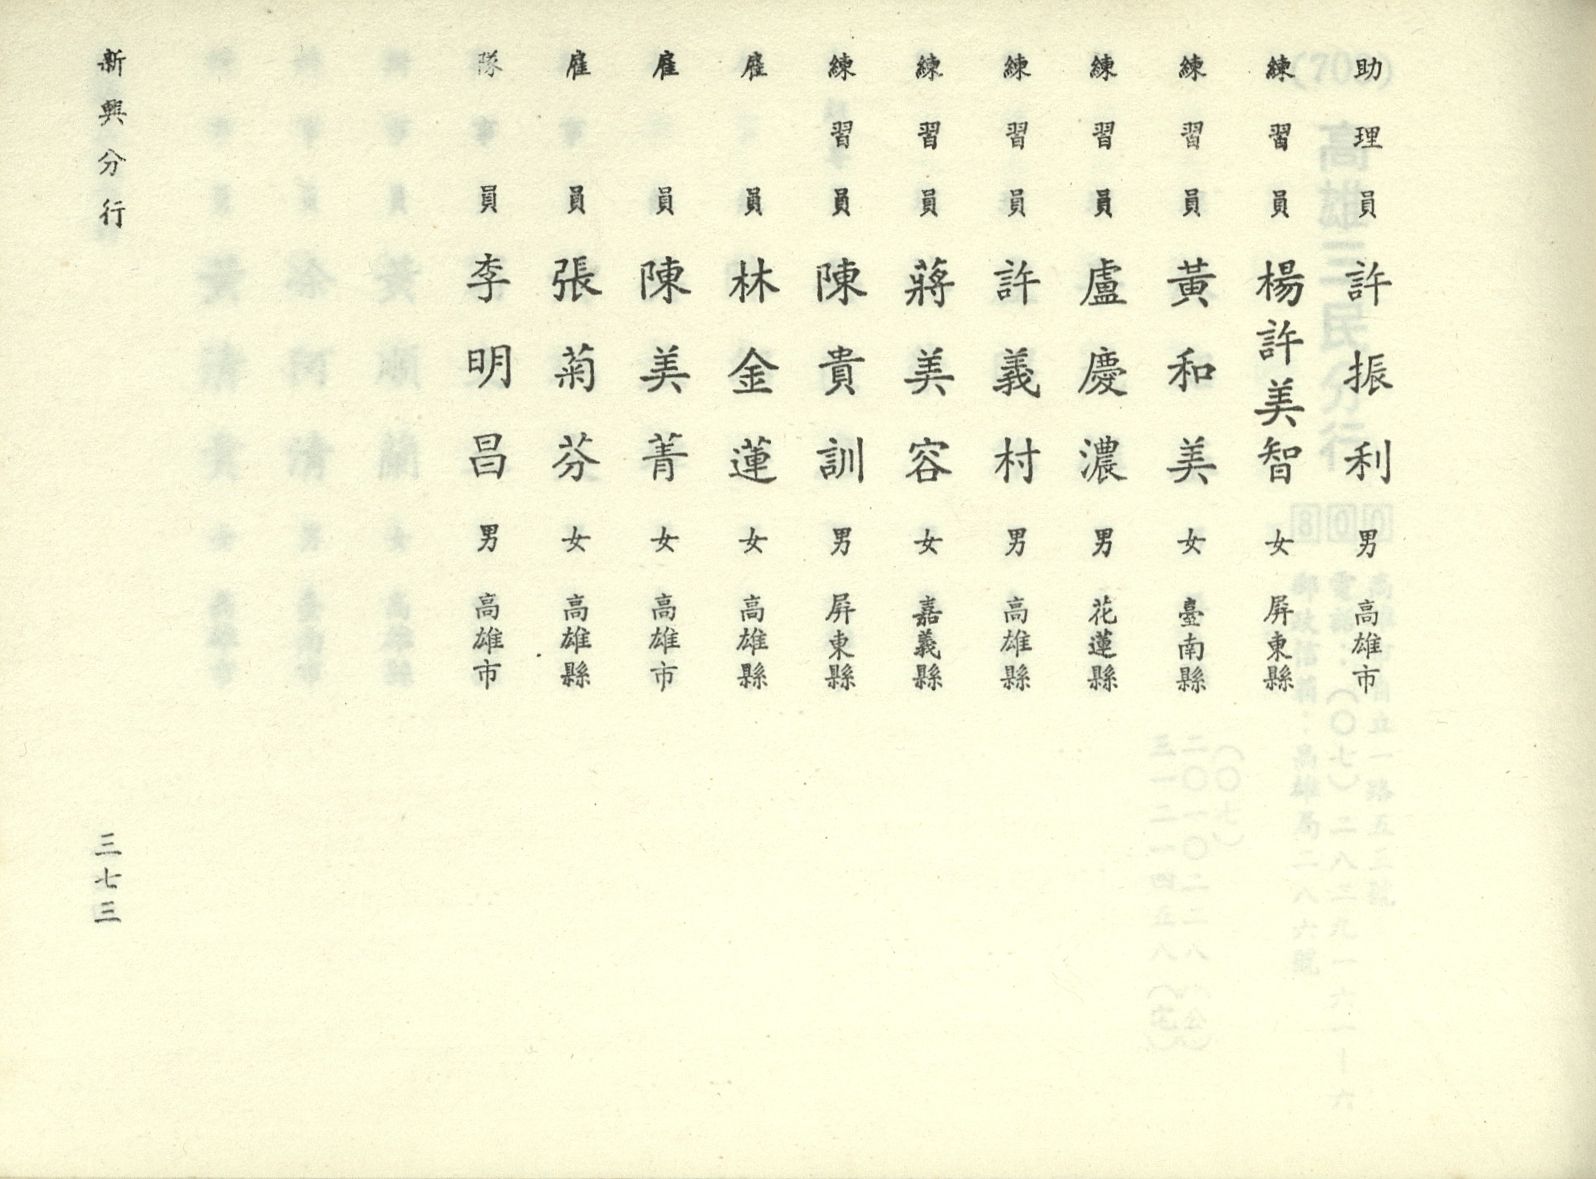 助理員 許振利 男 高雄市
練習員 楊許美智 女 屏東縣
練習員 黃和美 女 臺南縣
練習員 盧慶濃 男 花蓮縣
練習員 許義村 男 高雄縣
練習員 蔣美容 女 嘉義縣
練習員 陳貴訓 男 屏東縣
雇員 林金蓮 女 高雄縣
雇員 陳美菁 女 高雄市
雇員 張菊芬 女 高雄縣
隊員 李明昌 男 高雄市
新興分行
三七三